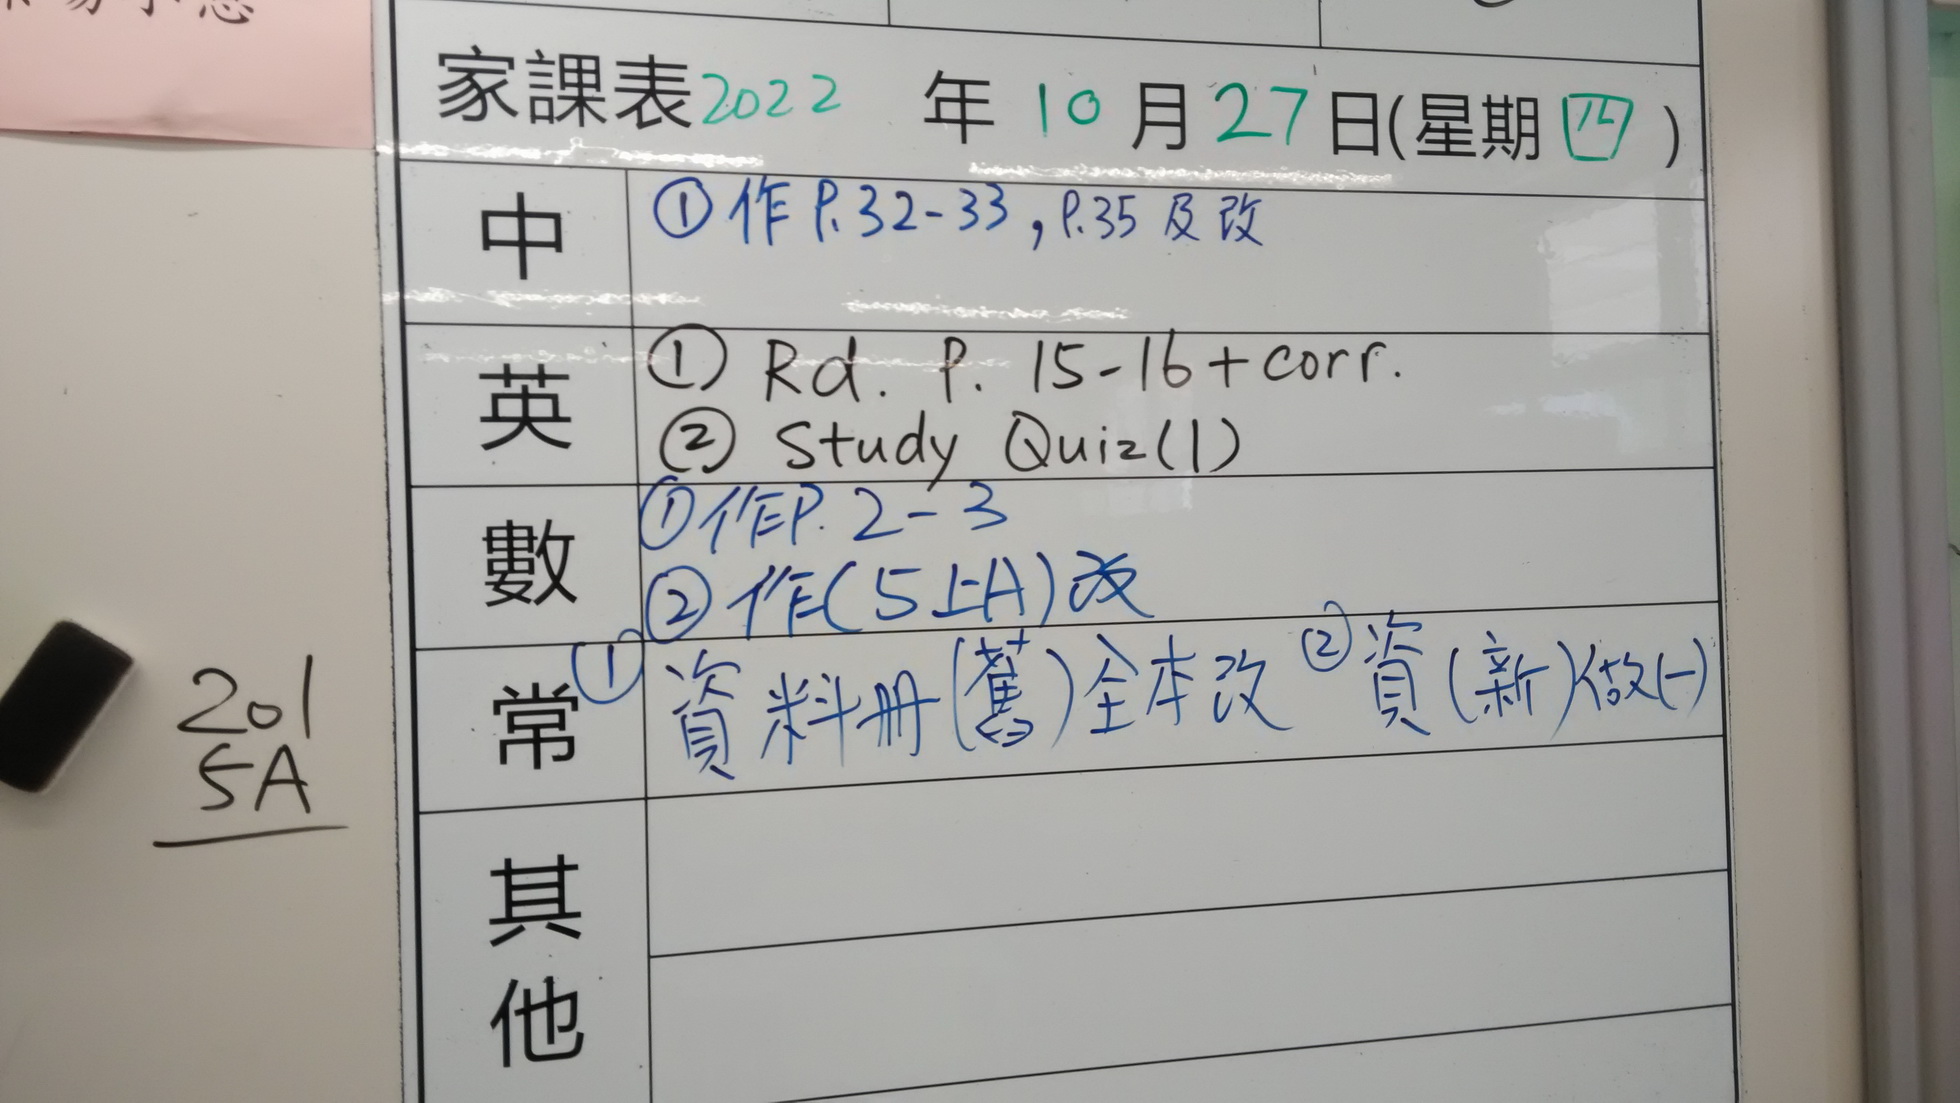 家課表2022 年 10 月 27 日(星期四)
中 ①作 P.32-33, P.35 及改
英 ① Rd. P. 15-16 + corr.
② Study Quiz(1)
數 ①作P. 2-3
②作(5上A)改
常 ①資料冊(舊)全本改 ②資(新)做(一)
其他
201
5A